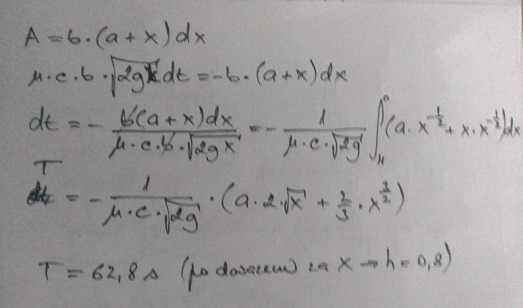 A = b·(a+x)dx
μ·c·b·√2gx dt = -b·(a+x)dx
dt = - b(a+x)dx / μ·c·b·√2gx = - 1 / μ·c·√2g ∫ (a·x^-1/2 + x·x^-1/2)dx
T = - 1 / μ·c·√2g · (a·2·√x + 2/3·x^3/2)
T = 62,8 s (po za x → h = 0,8)